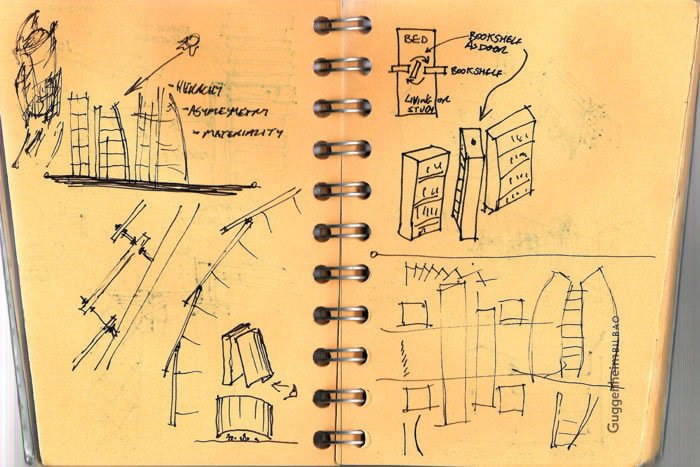 - HIERARCHY
- ASYMMETRY
- MATERIALITY
BED
BOOKSHELF
AS DOOR
BOOKSHELF
LIVING OR
STUDY
Guggenheim BILBAO